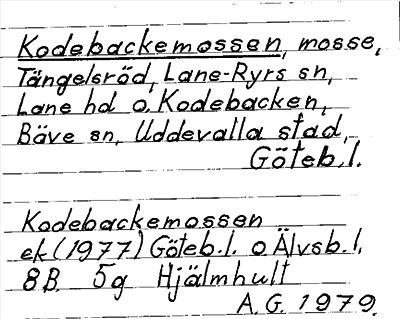 Kodebackemossen, mosse,
Tängelsröd, Lane-Ryrs sn,
Lane hd o. Kodebacken,
Bäve sn, Uddevalla stad,
Göteb.l.
Kodebackemossen
ek (1977) Göteb.l. o Älvsb.l,
8B. 5g Hjälmhult
A.G. 1979.